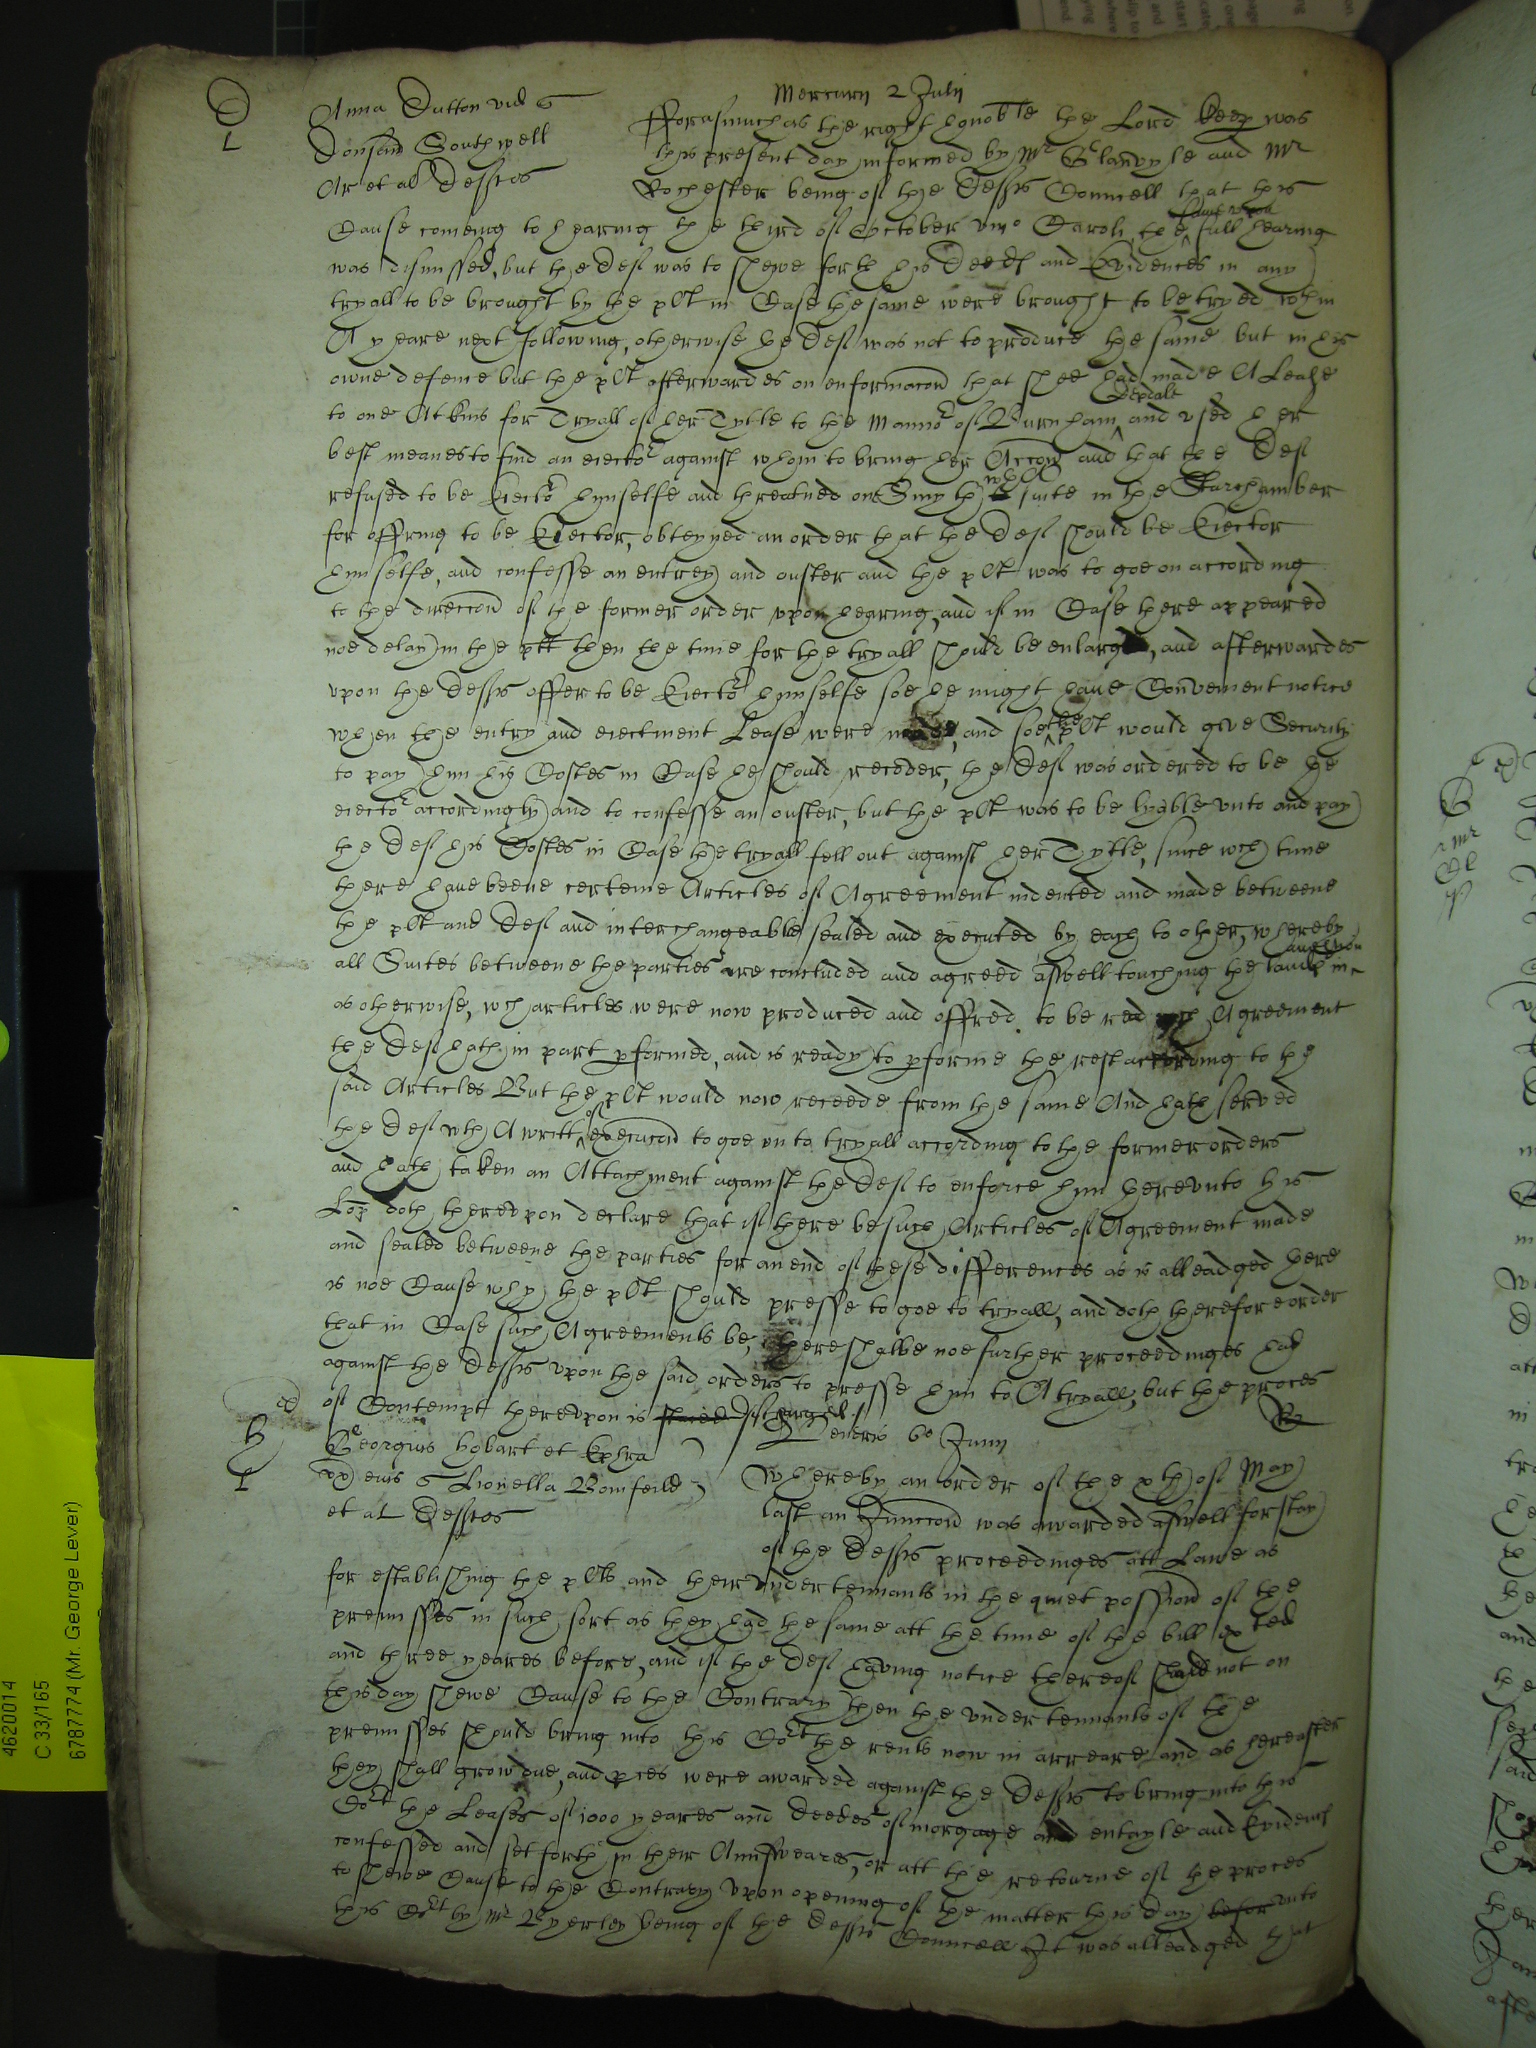 Mercurij 2 Julij
D
L
Anna Dutton vid q
Southwell
Ar et al Defftes
Fforasmuch as the right honoble the Lord Keep was
this present day informed by Mr Glanvyle and Mr
Rochester being of the Defftes Councell that this
Cause coming to hearing the third of October vmo Caroli, the full hearing
was dismissed, but the Deft was to shewe forth his Deedes and Evidences in any
tryall to be brought by the plt in Case the same were brought to be tryed wthin
A yeare next following, otherwise the Deft was not to produce the same but in his
owne defence but the plt afterwardes on enformacon that shee had made A Lease
to one Atkins for Tryall of her Tytle to the Mannor of Burnham and used her
best meanes to find an eiector against whom to bring her Accon and that the Deft
refused to be Eiector himselfe and threatned one Smyth suite in the Starchamber
for offring to be Eiector, obteyned an order that the Deft should be Eiector
himselfe, and confesse an entrey and ouster and the plt was to goe on according
to the direccon of the former order upon hearing, and if in Case there appeared
noe delay in the plt then the time for the tryall should be enlarged, and afterwardes
upon the Defftes offer to be Eiector himselfe soe he might have Convenient notice
when the entry and eiectment Lease were made, and soe the plt would give Security
to pay him his Costes in Case he should recover, the Deft was ordered to be the
eiector accordingly and to confesse an ouster, but the plt was to be lyable unto and pay
the Deft his Costes in Case the tryall fell out against her Tytle, since wch time
there have beene certeine Articles of Agreement indented and made betweene
the plt and Deft and interchangeable sealed and executed by each to other, whereby
all Suites betweene the parties are concluded and agreed aswell touching the landes in
as otherwise, wch articles were now produced and offred to be read wch Agreement
the Deft hath in part pformed, and is ready to pforme the rest according to the
said Articles But the plt would now receede from the same And hath served
the Deft wth A writt of execucon to goe unto tryall according to the former orders
and hath taken an Attachment against the Deft to enforce him thereunto his
Lop doth thereupon declare that if there be such Articles of Agreement made
and sealed betweene the parties for an end of these differences as is alleadged there
is noe Cause why the plt should presse to goe to tryall, and doth therefore order
that in Case such Agreements be, there shalbe noe further proceedinges had
against the Defftes upon the said orders to presse him to A tryall, but the proces
of Contempt thereupon is discharged.
H
L
Georgius Hobart et
ux eius q Lionella Bomfeild
et al Defftes
Veneris 6o Junij
Whereby an order of the xth of May
last an Iniunccon was awarded aswell for stay
of the Defftes proceedinges att Lawe as
for establishing the plts and their undertennants in the quiet possion of the
premisses in such sort as they had the same att the time of the bill exted
and three yeares before, and if the Deft having notice thereof should not on
this day shewe Cause to the Contrary then the undertennants of the
premisses should bring into this Cort the rents now in arreare and as hereafter
they shall grow due, and pces were awarded against the Defftes to bring into this
Cort the Leases of 1000 yeares and Deedes of morgage and entayle and Evidences
confessed and set forth in their Answeares, or att the retourne of the proces
to shewe Cause to the Contrary upon opening of the matter this day unto
this Cort by Mr Byerley being of the Defftes Councell It was alleadged that
4620014
C 33/165
6787774 (Mr. George Lever)